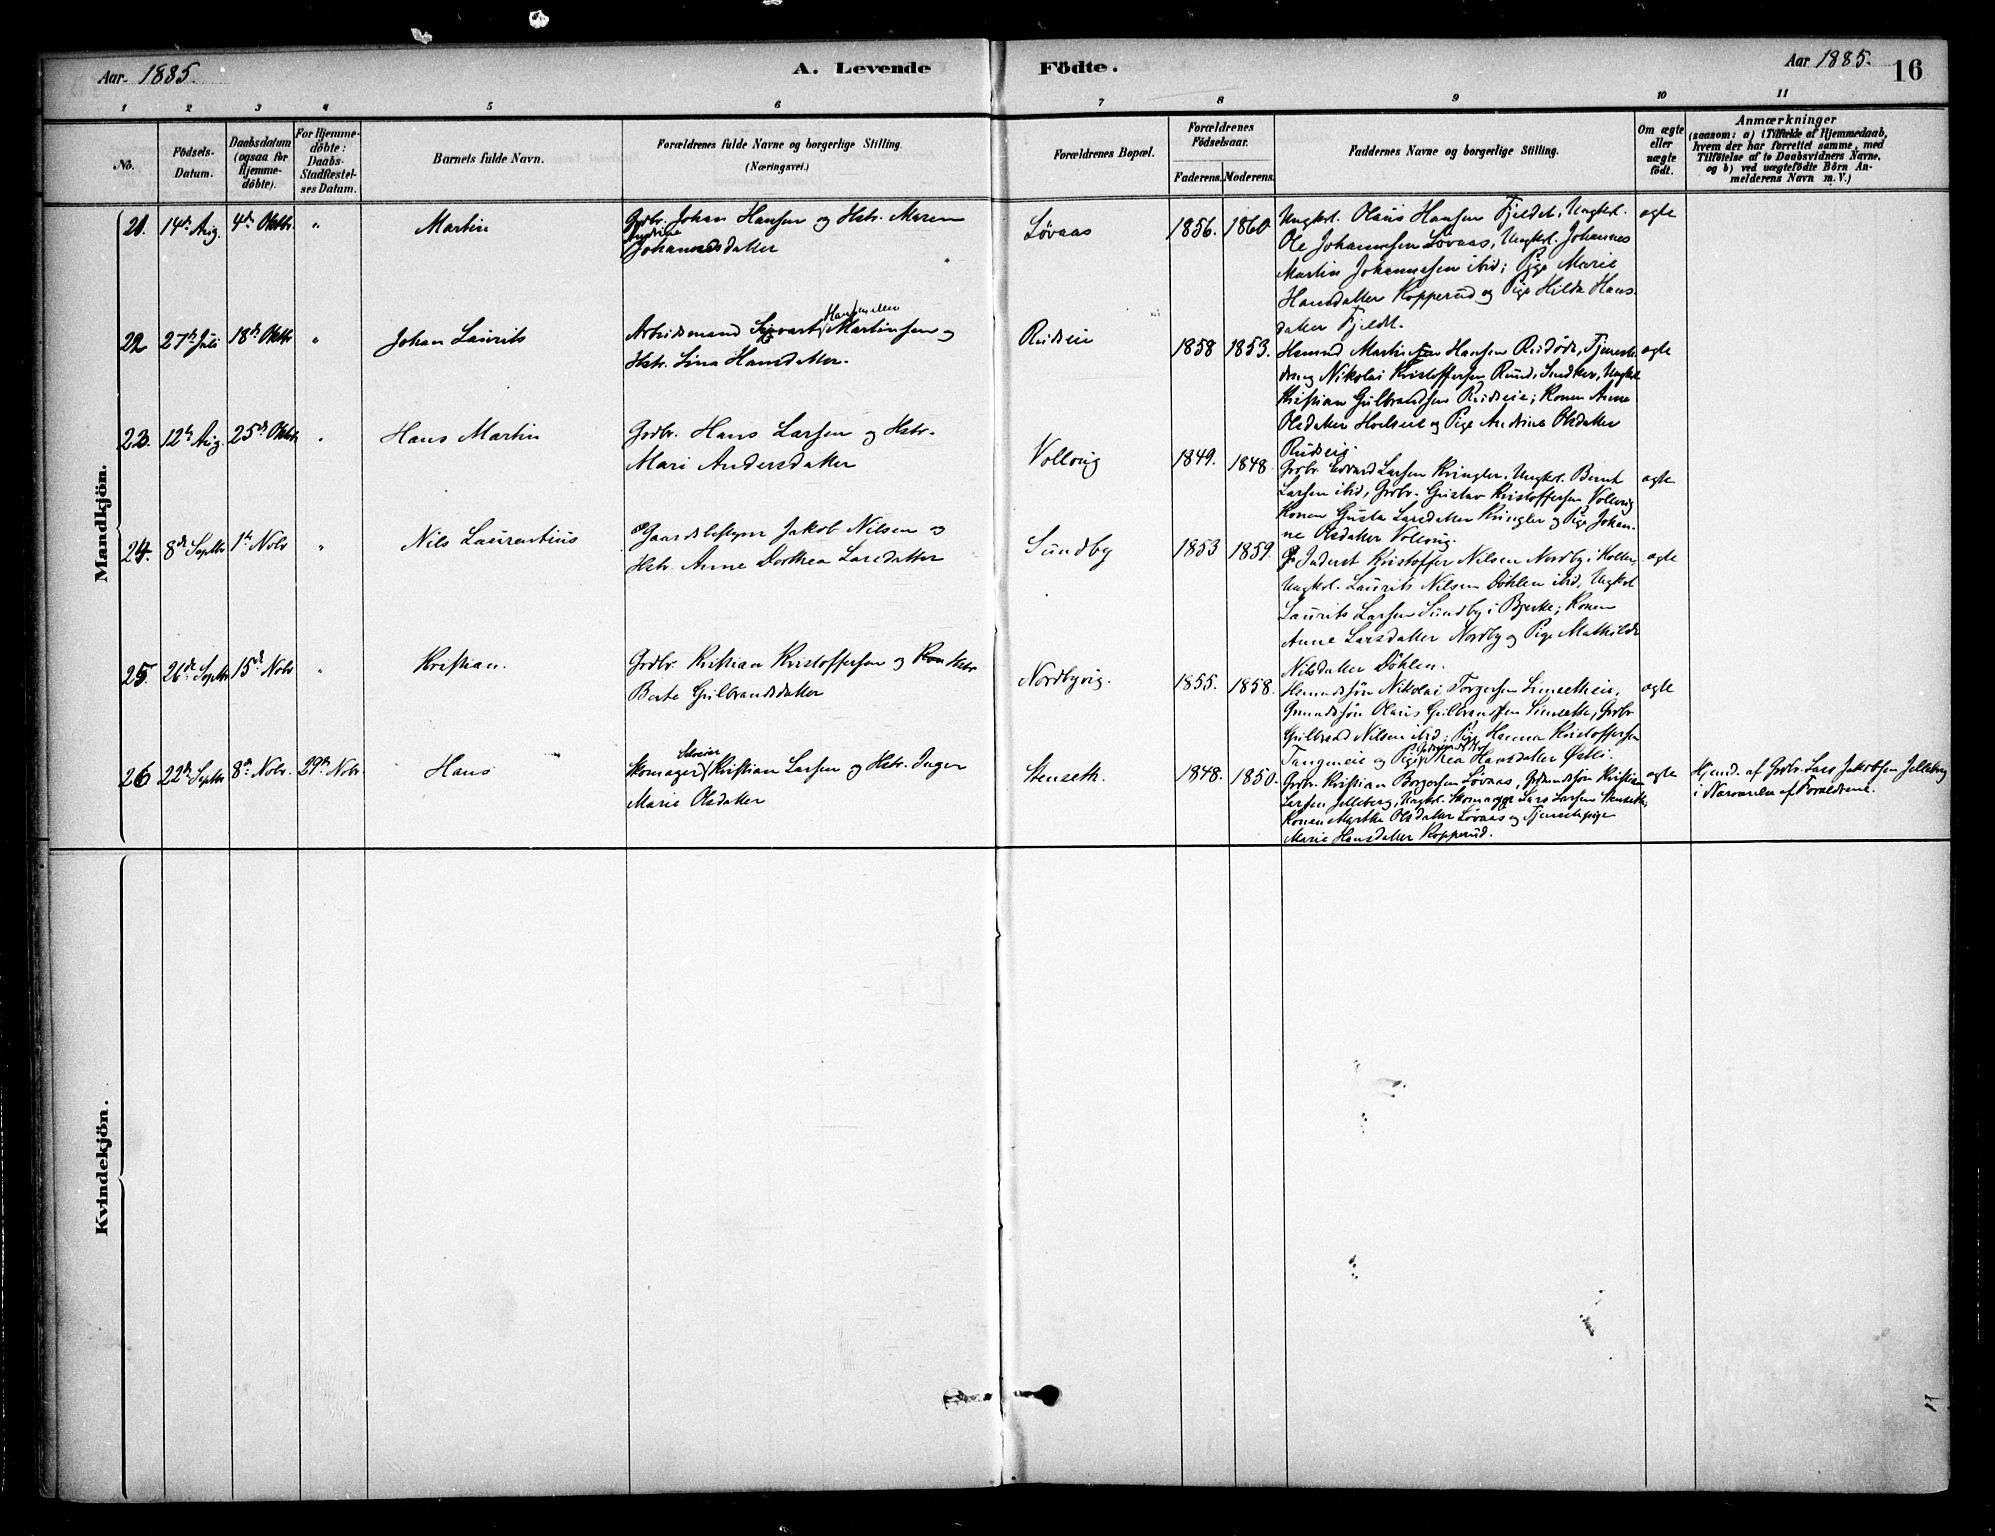 Aar 1885.
A. Levende
Födte.
Aar 1885.
16
1 2 3 4 5 6 7 8 9 10 11
No.
Födsels-
Datum.
Daabsdatum
(ogsaa for
Hjemme-
döbte).
For Hjemme-
döbte:
Daabs-
Stadfæstel-
ses Datum.
Barnets fulde Navn.
Forældrenes fulde Navne og borgerlige Stilling.
(Næringsvei.)
Forældrenes Bopæl.
Forældrenes
Födselsaar.
Faderens. Moderens.
Faddernes Navne og borgerlige Stilling.
Om ægte
eller
uægte
födt.
Anmærkninger
(saasom: a) i Tilfælde af Hjemmedaab,
hvem der har forrettet samme, med
Tilföielse af to Daabsvidners Navne,
og b) ved uægtefödte Börn An-
melderens Navn m. V.)
Mandkjön.
21. 14de Aug. 4de Oktbr. " Martin
Grdbr. Johan Hansen og Hstr. Maren
Andrine
Johannesdatter
Løvaas 1856. 1860
Ungkl. Olaus Hansen Fjeldet, Ungkl.
Ole Johannesen Løvaas, Ungkl. Johannes
Martin Johannesen ibid; Pige Marie
Hansdatter Kopperud og Pige Hilda Hans-
datter Fjeldt.
ægte
22 27de Juli 18de Oktbr " Johan Laurits
Arbeidsmand Sigvart Martinsen og
Hstr. Lina Hansdatter.
Rudseie 1858 1853.
Hsmnd Martin Hansen Rudseie, Tjeneste
dreng Nikolai Kristoffersen Rund, Ungkl
Kristian Gulbrandsen Rudseie; Konen Anne
Olsdatter Hoelseie og Pige Andrine Olsdatter
Rudseie.
ægte
23. 12te Aug. 25de Oktbr " Hans Martin
Grdbr. Hans Larsen og Hstr.
Mari Andersdatter
Vollvig 1849. 1848
Grdbr. Edvard Larsen Kringler, Ungkl. Bernt
Larsen ibid, Grdbr. Gustav Kristoffersen Vollvig
Konen Gusta Larsdatter Kringler og Pige Johan-
ne Olsdatter Vollvig.
ægte
24. 8de Septbr 1ste Novbr " Nils Laurentius
Gaardsbestyrer Jakob Nilsen og
Hstr. Anne Dorthea Larsdatter
Sundby 1853 1859.
Inderst Kristoffer Nilsen Nordby i Holter,
Ungkl. Laurits Nilsen Døhlen ibid, Ungkl
Laurits Larsen Sundby i Bjerke; Konen
Anne Larsdatter Nordby og Pige Mathilde
Nilsdatter Døhlen.
ægte
25. 26de Septbr 15de Novbr " Kristian.
Grdbr. Kristian Kristoffersen og Hstr
Berte Gulbrandsdatter
Nordbyvig. 1855. 1858.
Hsmandssøn Nikolai Torgersen
Grmndssøn Olaus Gulbrandsen Simseth, Grdbr
Gulbrand Nilsen ibid; Pige Hanna Kristoffersen
Tangeneie og Pige Thea Hansdatter
ægte
26 22de Septbr 8de Novbr. 29de Novbr. Hans
Skomager Kristian Larsen og Hstr. Inger
Marie Olsdatter
Stenseth. 1848. 1850.
Grdbr. Kristian Borgersen Løvaas, Grdmndssøn Kristian
Larsen Jelleberg, Ungkl. Skomager Lars Larsen Stenseth,
Konen Marthe Olsdatter Løvaas og Tjenestepige
Marie Hansdatter Kopperud.
ægte
Hjmd. af Grdbr. Lars Jakobsen Jelleberg
i Nærværelse af Forældrene.
Kvindekjön.